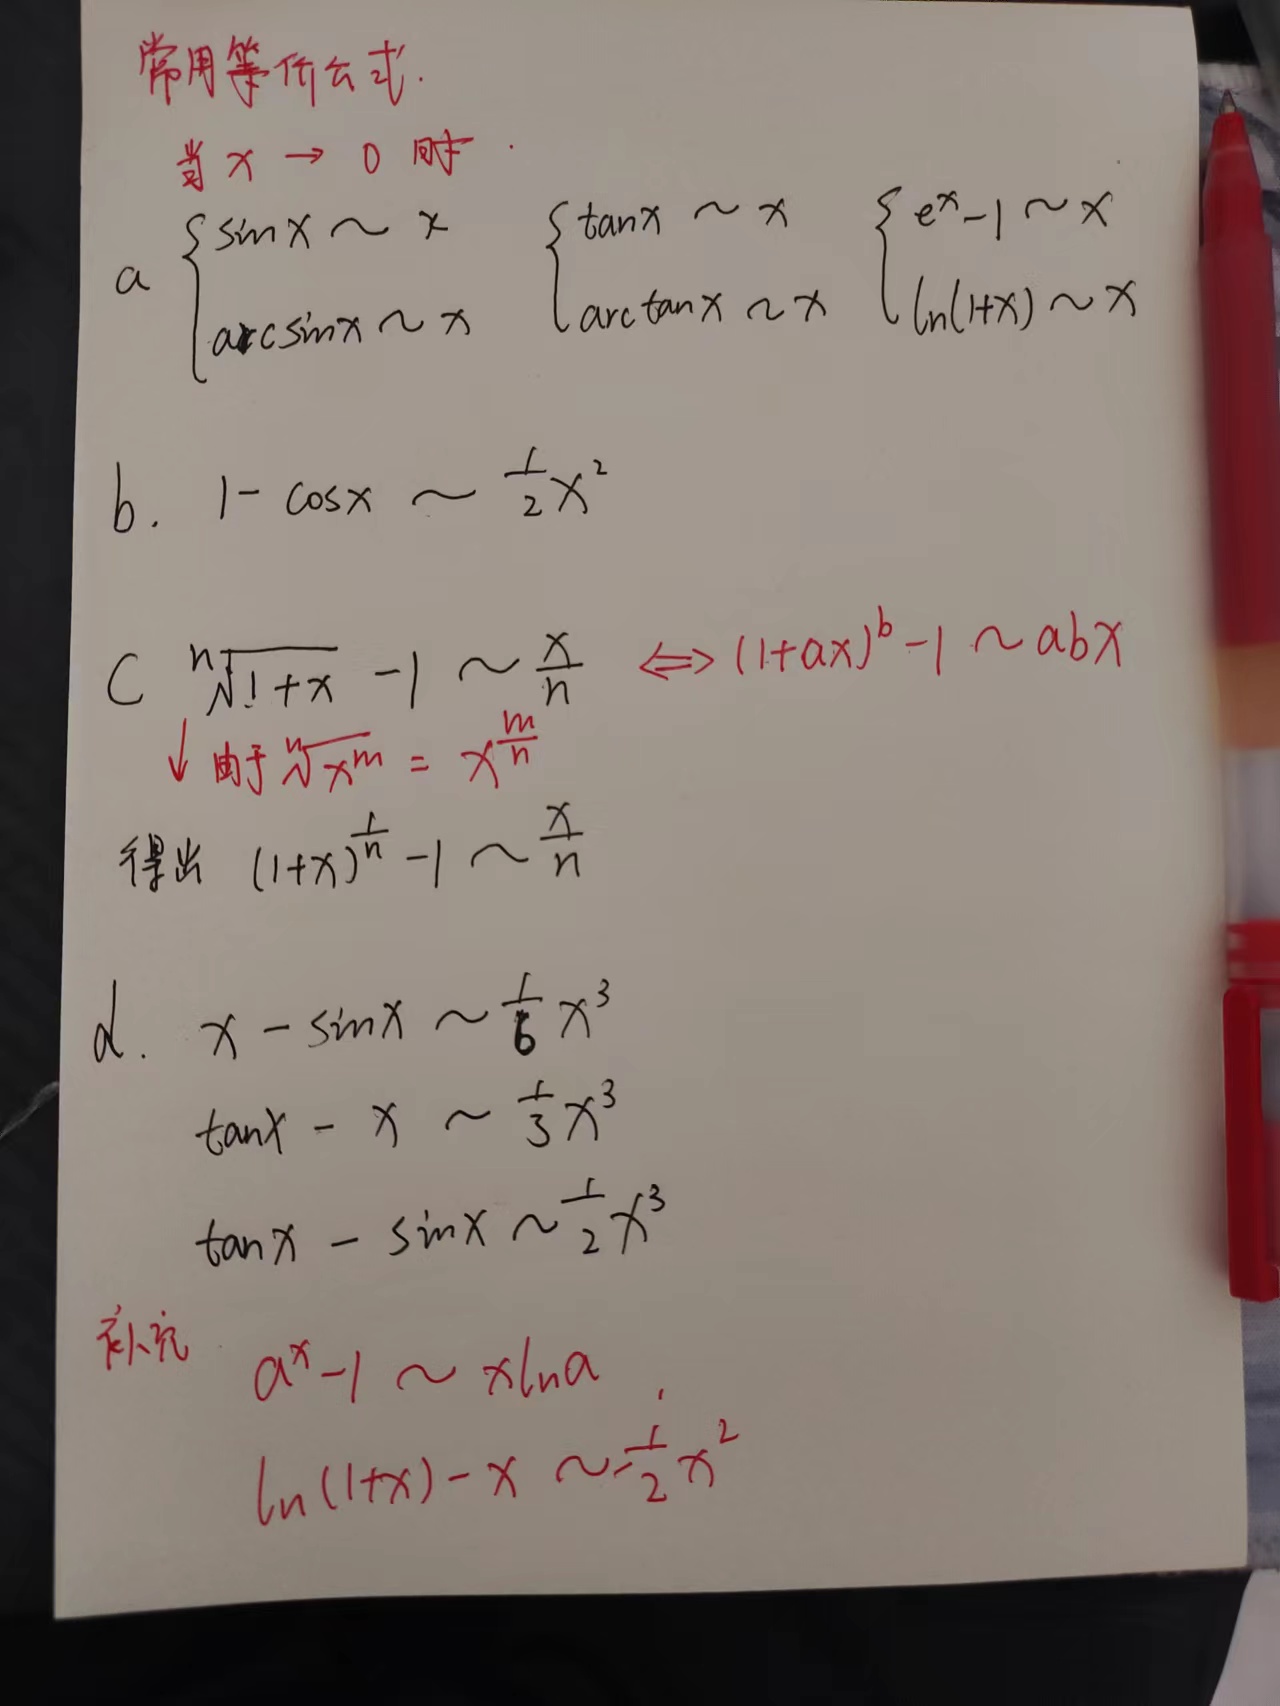 常用等价公式.
当 x → 0 时.
a { sinx ~ x { tanx ~ x { eˣ-1 ~ x
arcsinx ~ x arctanx ~ x ln(1+x) ~ x
b. 1 - cosx ~ 1/2 x²
c ⁿ√(1+x) - 1 ~ x/n ⟺ (1+ax)ᵇ - 1 ~ abx
↓ 由于 ⁿ√(xᵐ) = x^(m/n)
得出 (1+x)^(1/n) - 1 ~ x/n
d. x - sinx ~ 1/6 x³
tanx - x ~ 1/3 x³
tanx - sinx ~ 1/2 x³
补充 aˣ-1 ~ xlna
ln(1+x) - x ~ -1/2 x²